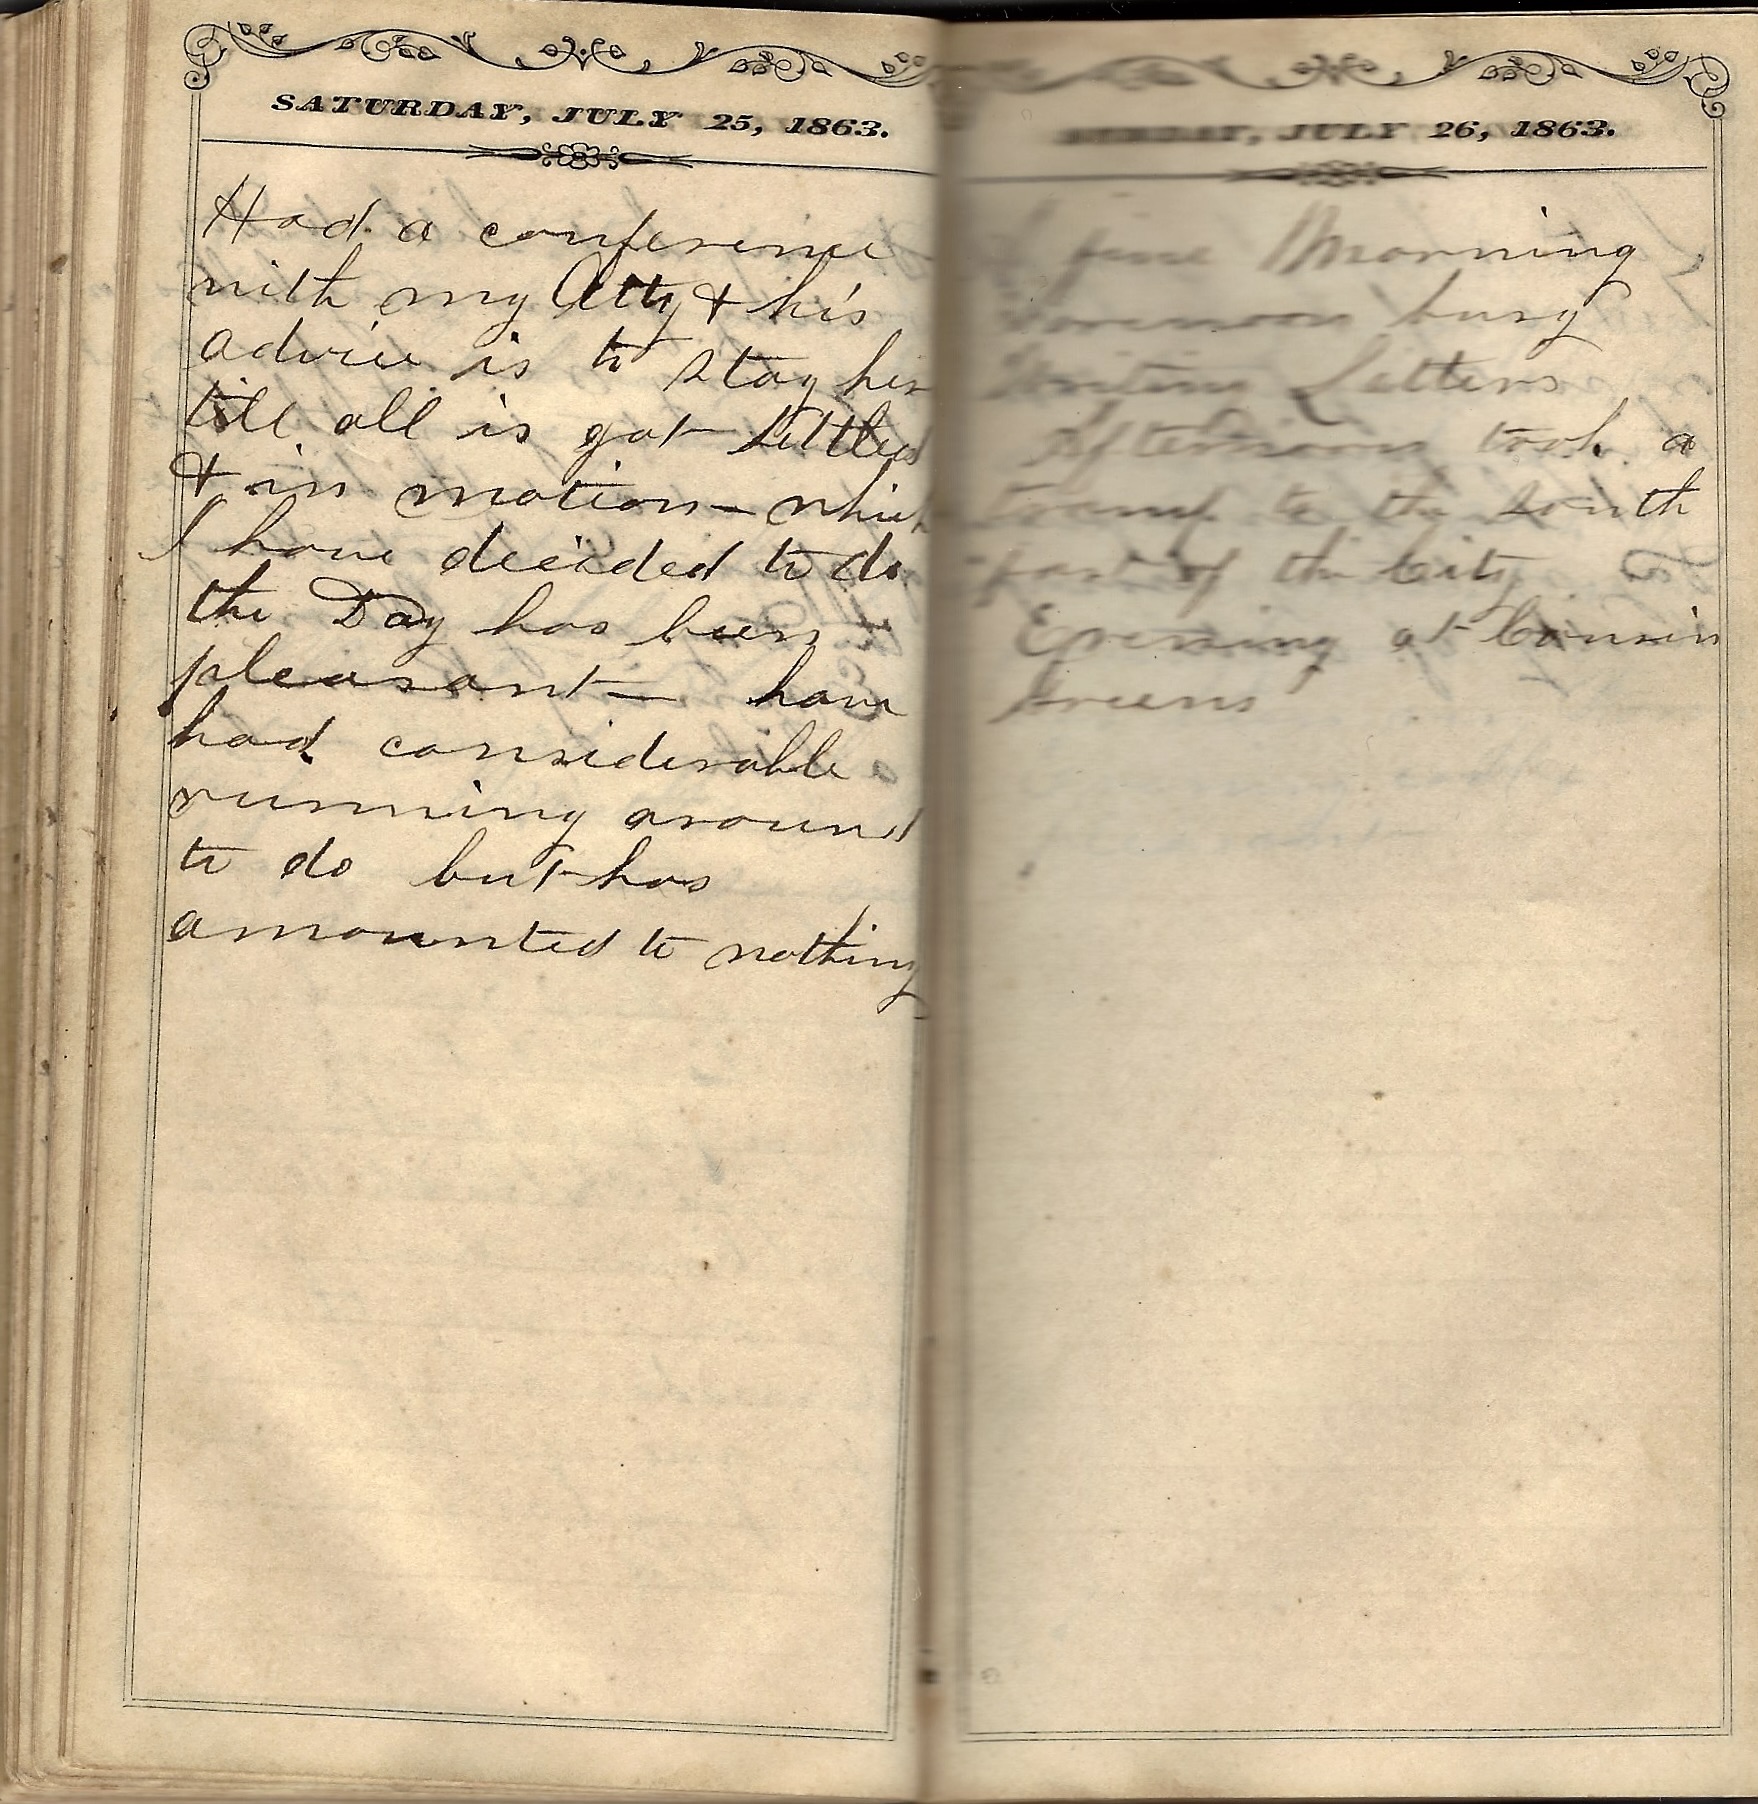 SATURDAY, JULY 25, 1863.
Had a conference
with my Atty & his
advice is to stay here
till all is got settled
& in motion — which
I have decided to do
the Day has been
pleasant — have
had considerable
running around
to do but has
amounted to nothing
SUNDAY, JULY 26, 1863.
fine Morning
Forenoon busy
Writing Letters
Afternoon took a
tramp to the South
part of the City &
Evening at Cousin
Greens